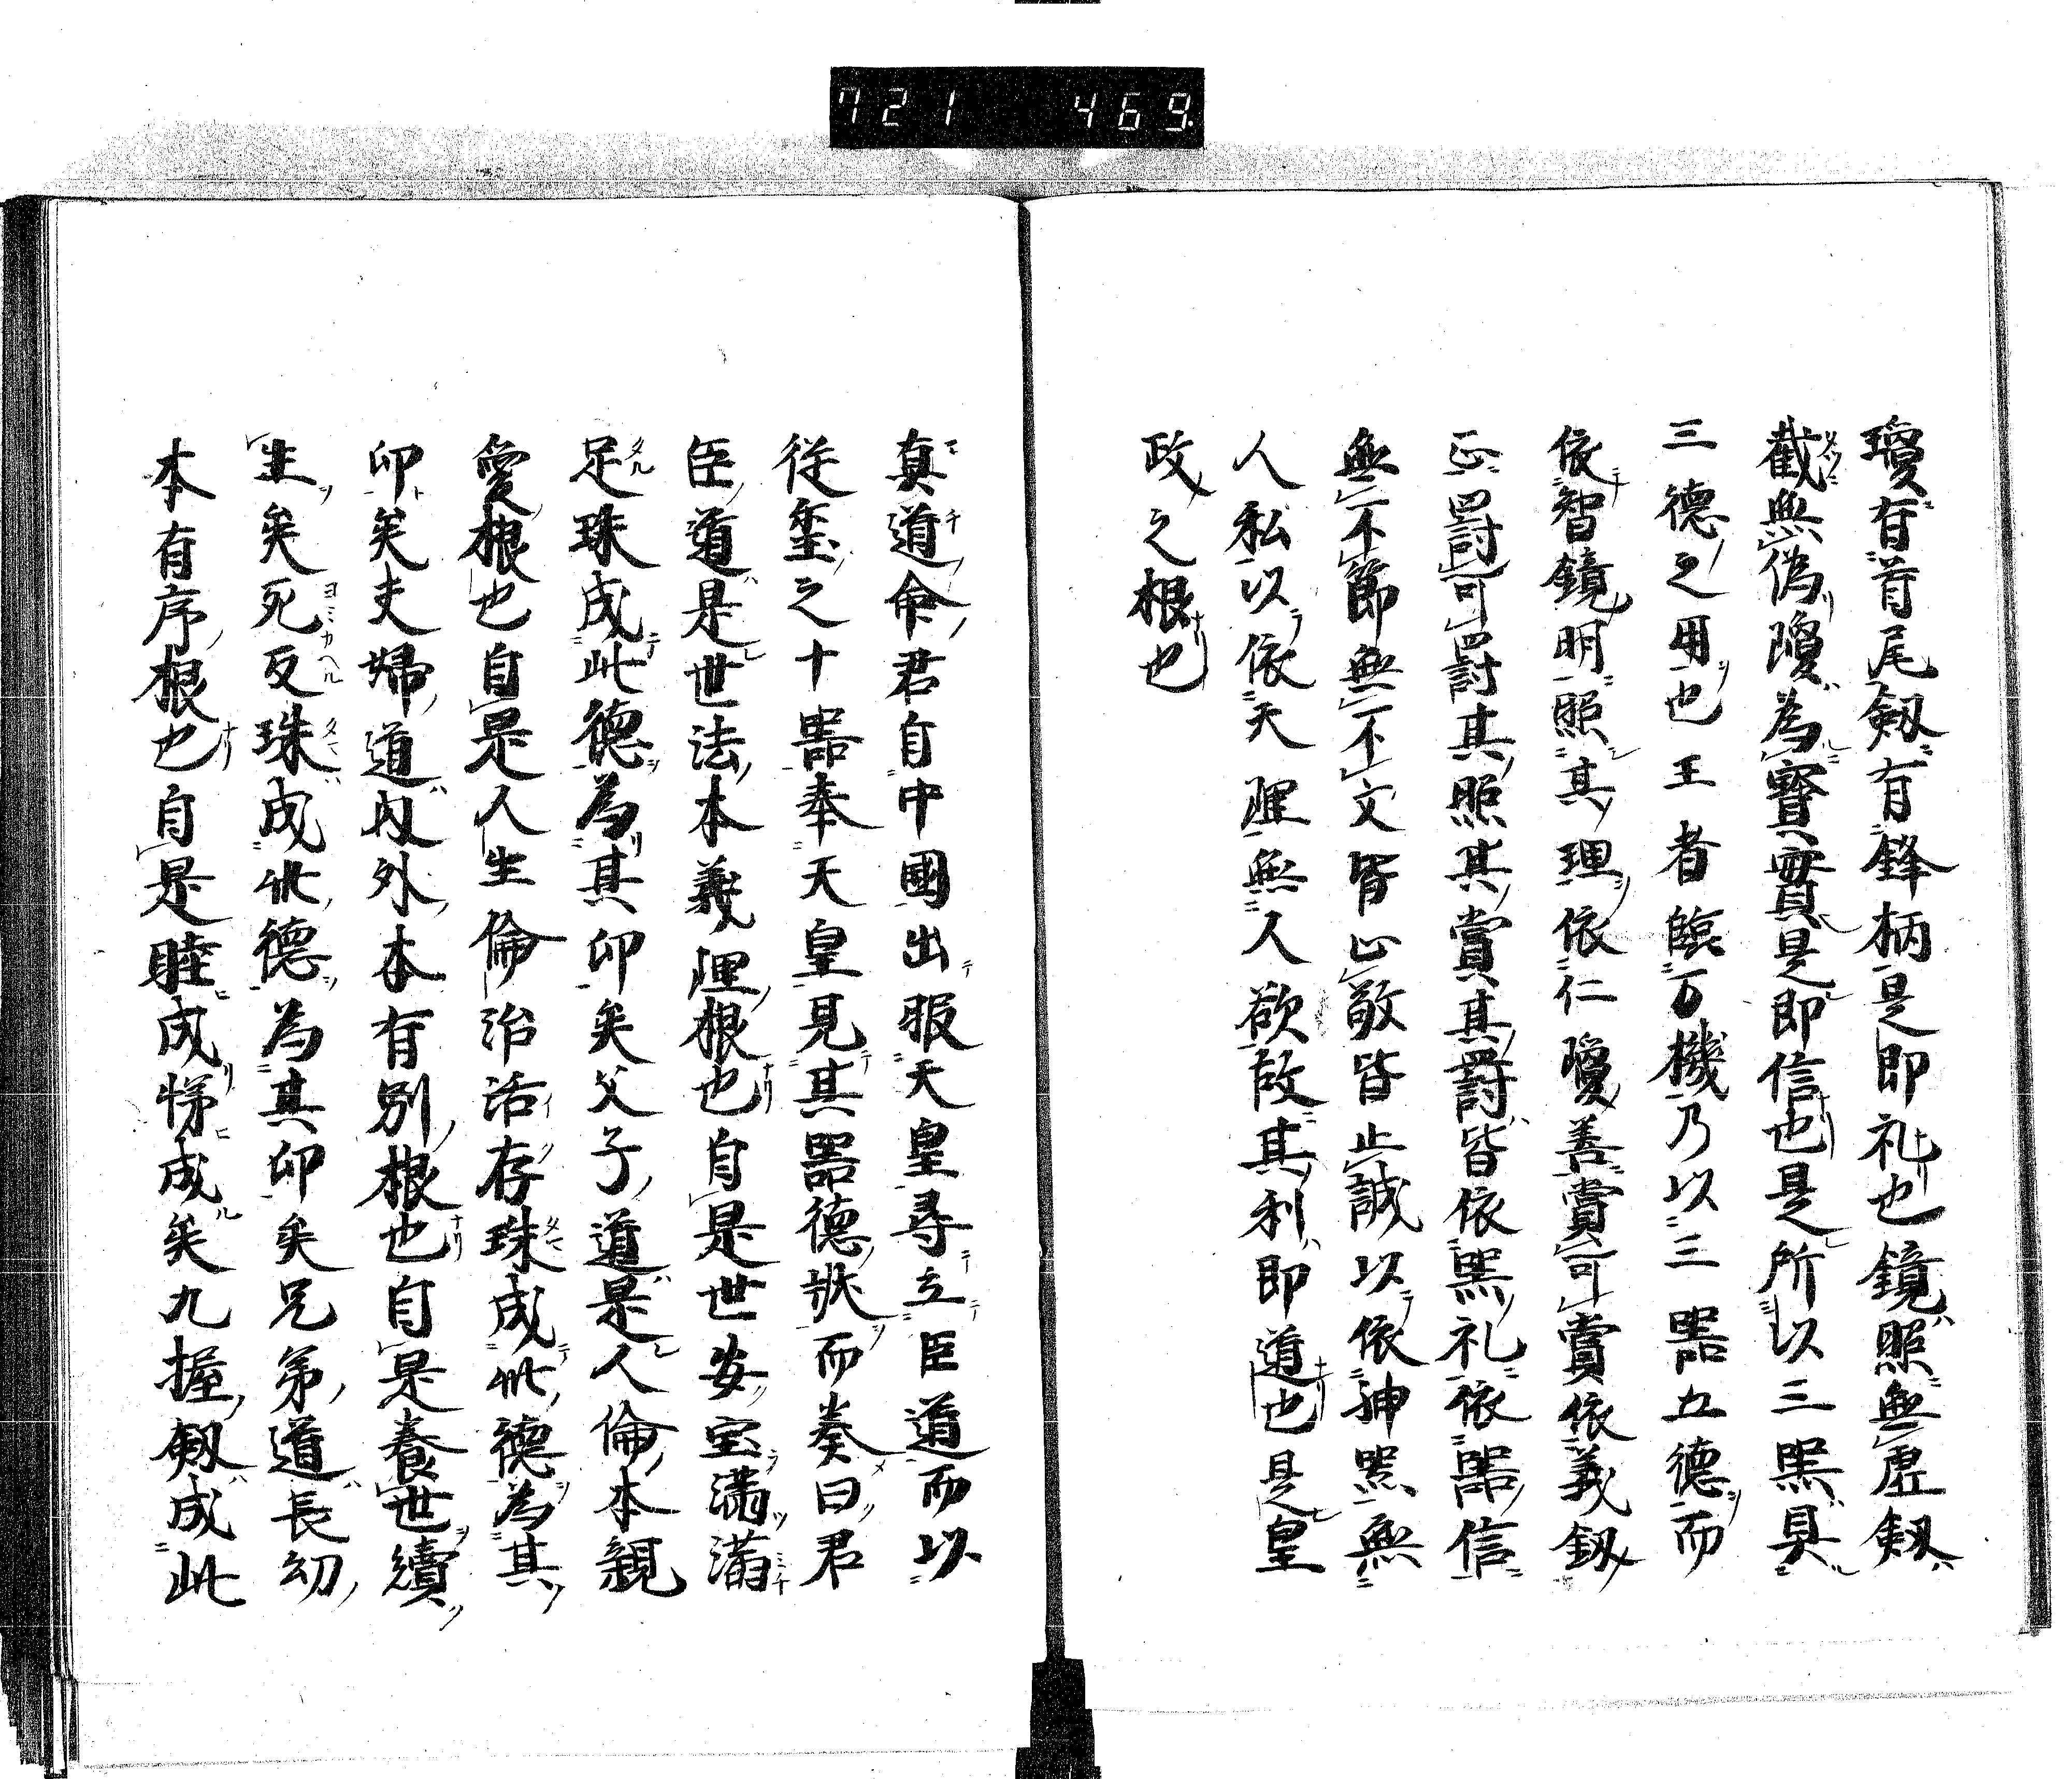 721 469
瓊有首尾釼有鋒柄是即礼也鏡照無虚釼
截無偽瓊為寶實是即信也是所以三器具
三德之用也王者臨万機乃以三器五德而
依智鏡明照其理依仁瓊善賞可賞依義釼
正罰可罰其照其賞其罰皆依器礼依器信
無不節無不文皆止敬皆止誠以依神器無
人私以依天理無人欲故其利即道也是皇
政之根也
真道命君自中國出服天皇尋立臣道而以
従璽之十器奉天皇見其器德狀而奏曰君
臣道是世法本義理根也自是世安宝満満
足珠成此德為其印矣父子道是人倫本親
愛根也自是人生倫治活存珠成此德為其
印矣夫婦道内外本有別根也自是養世續
生矣死反珠成此德為其印矣兄弟道長幼
本有序根也自是睦成悌成矣九握釼成此